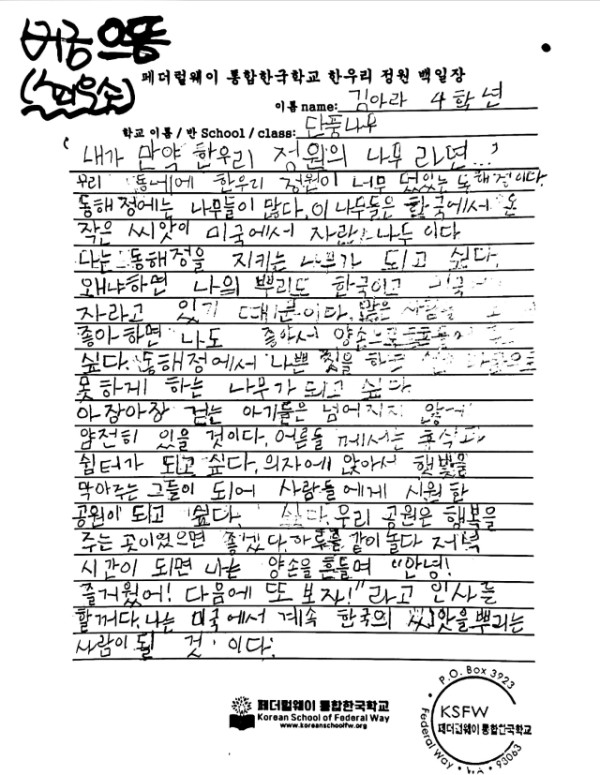 버금 으뜸
페더럴웨이 통합한국학교 한우리 정원 백일장
이름 name: 김아라 4학년
학교 이름 / 반 School / class: 단풍나무
'내가 만약 한우리 정원의 나무 라면...'
우리 동네에 한우리 정원이 너무 멌있는 동해정이다.
동해정에는 나무들이 많다. 이 나무들은 한국에서 온
작은 씨앗이 미국에서 자란 나무 이다
나는 동해정을 지키는 나무가 되고 싶다.
왜냐하면 나의 뿌리도 한국이고
자라고 있기 때문이다. 많은 사람들
좋아하면 나도 좋아서 양손으로
싶다. 동해정에서 나쁜 짓을 하는
못하게 하는 나무가 되고 싶다
아장아장 걷는 아기들은 넘어지지 않게
얌전히 있을 것이다. 어른들 께서는
쉼터가 되고 싶다. 의자에 앉아서 햇빛을
막아주는 그들이 되어 사람들에게 시원한
공원이 되고 싶다. 싶다. 우리 공원은 행복을
주는 곳이였으면 좋겠다. 하루를 같이 놀다 저녁
시간이 되면 나는 양손을 흔들며 "안녕!
즐거웠어! 다음에 또 보자!" 라고 인사를
할꺼다. 나는 미국에서 계속 한국의 씨앗을 뿌리는
사람이 될 것 이다.
페더럴웨이 통합한국학교
Korean School of Federal Way
www.koreanschoolfw.org
P.O. Box 3923
KSFW
페더럴웨이 통합한국학교
Federal Way · WA · 98063